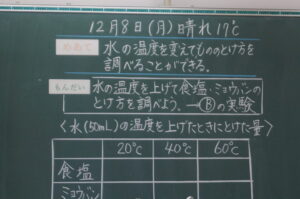 12月8日(月)晴れ17℃
めあて 水の温度を変えてもののとけ方を
調べることができる。
もんだい 水の温度を上げて食塩・ミョウバンの
とけ方を調べよう。→Ⓑの実験
〈水(50mL)の温度を上げたときにとけた量〉
20℃ 40℃ 60℃
食塩
ミョウバン